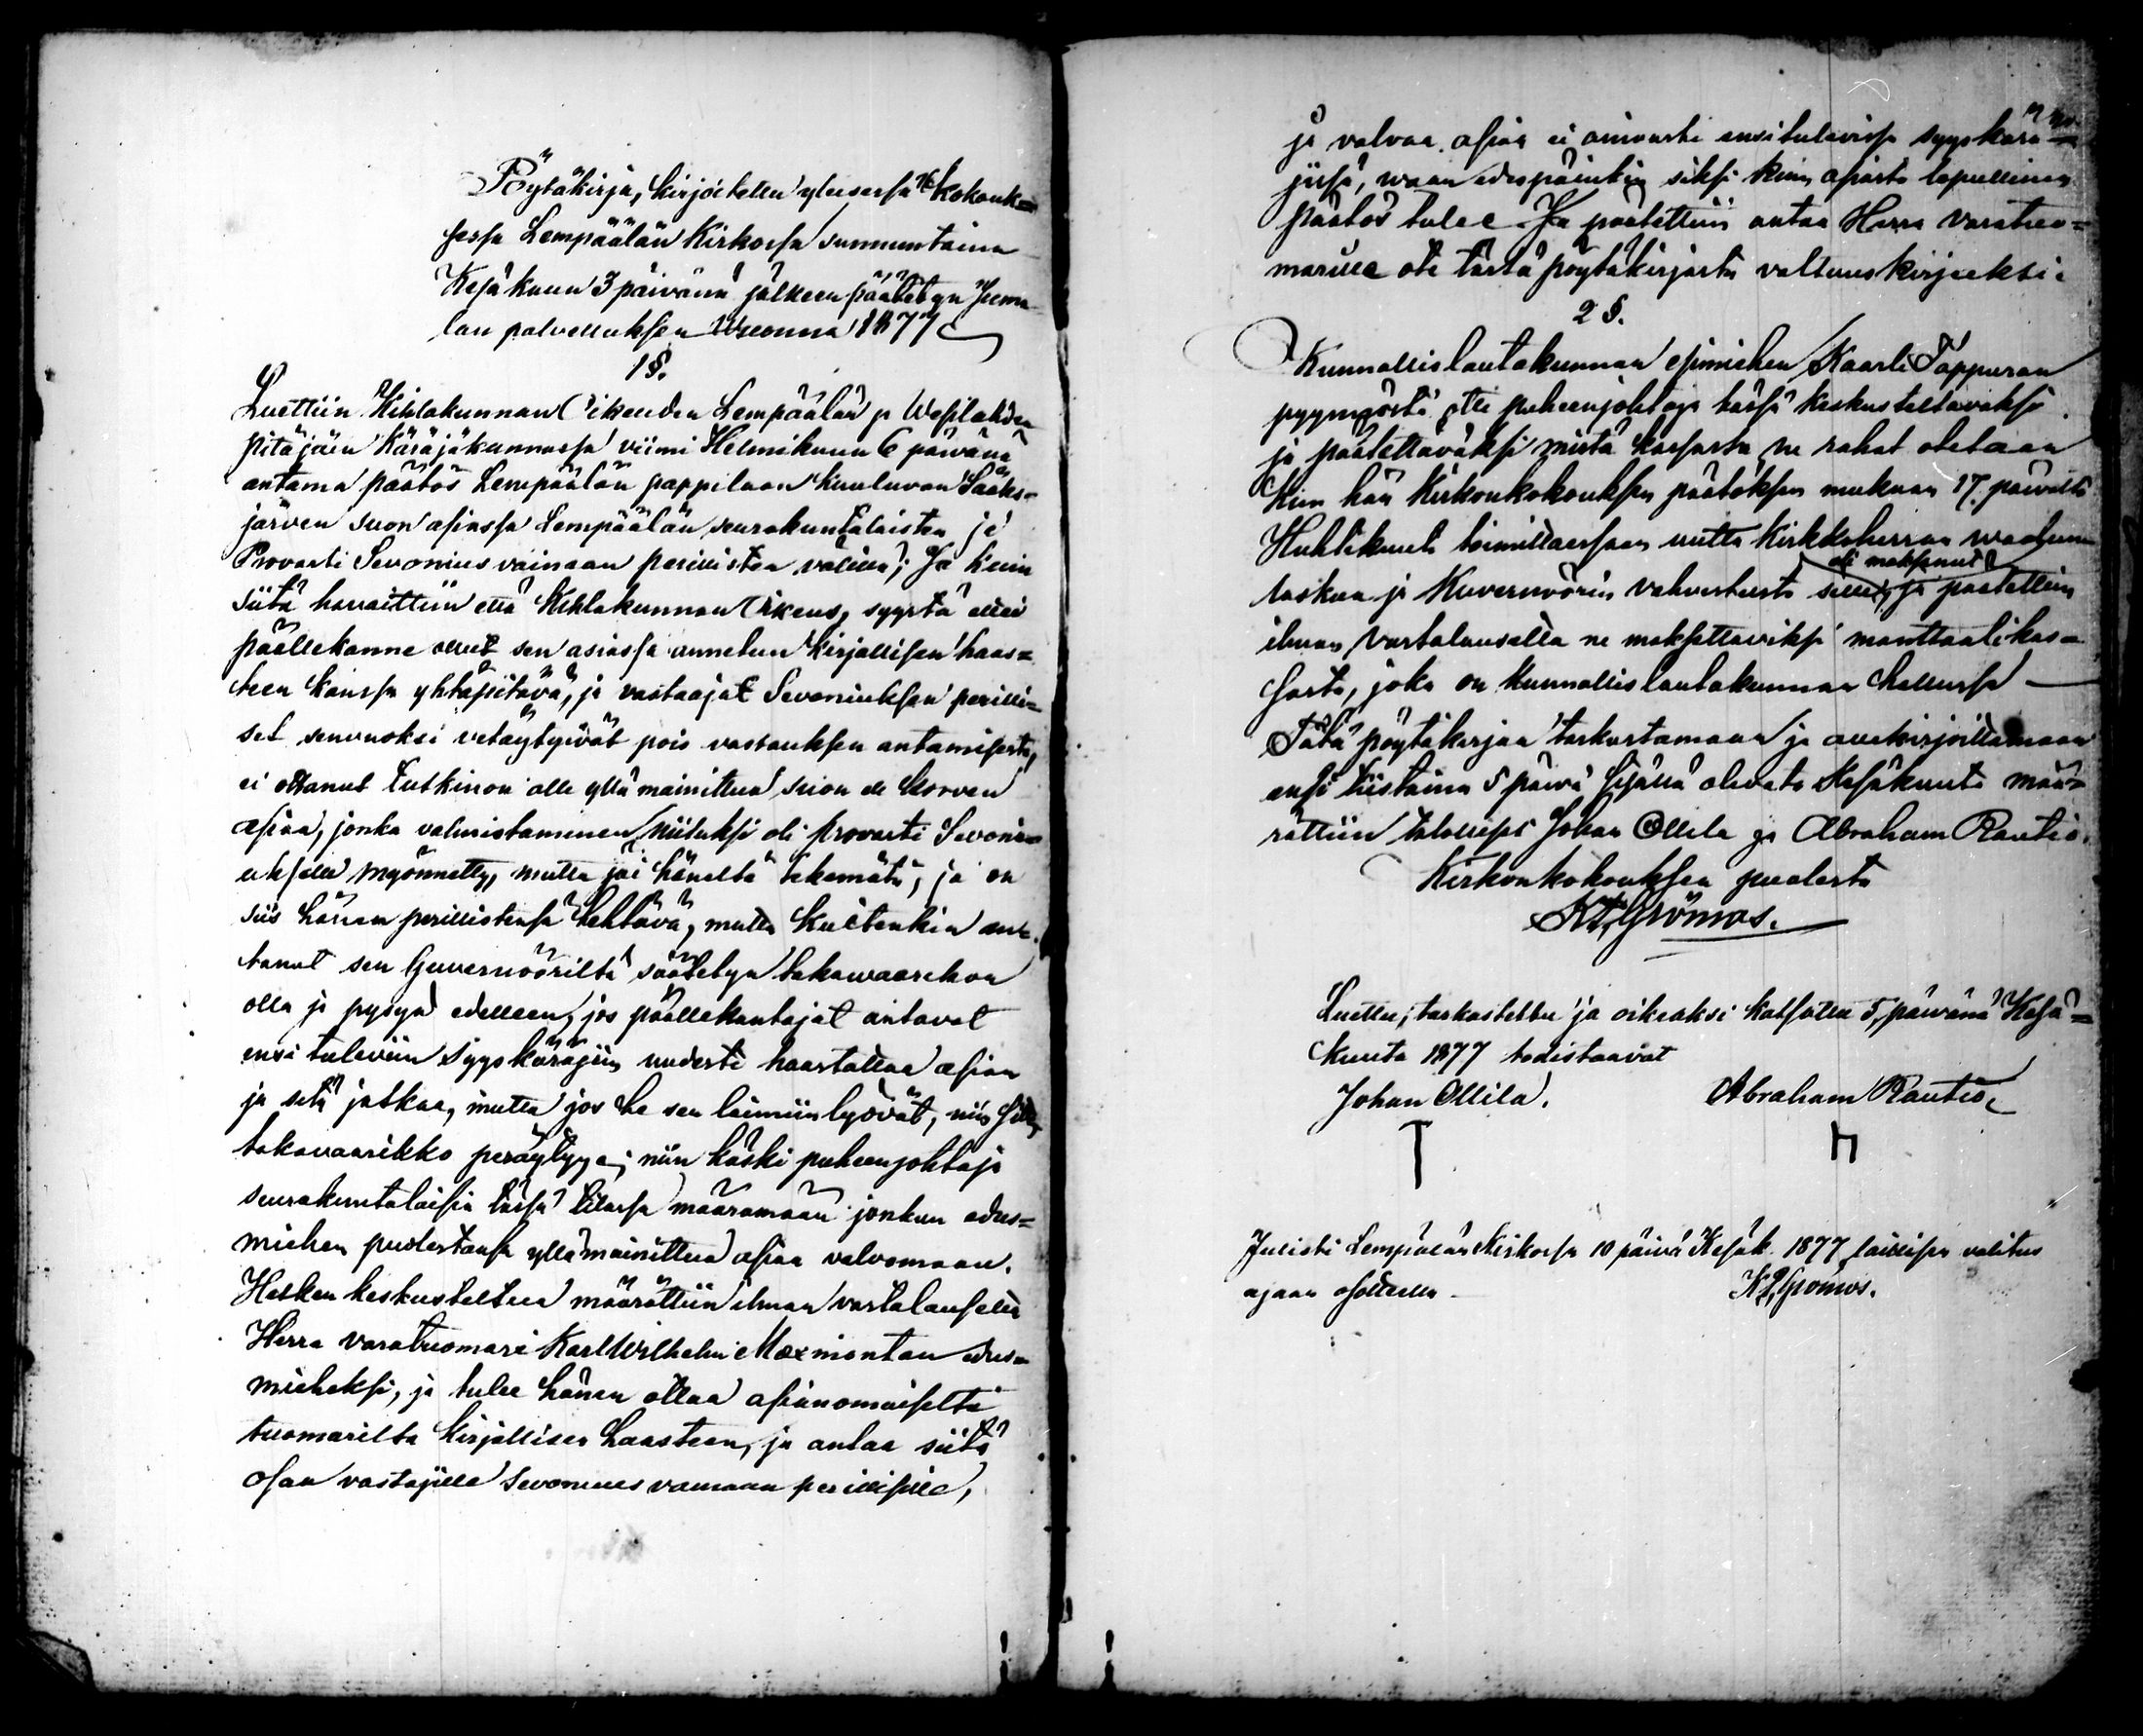 Pöytäkirja, kirjoitettu yleisessä Kokouk=
sessa Lempäälän Kirkossa sunnuntaina
Kesäkuun 3 päivänä jälkeen päätetyn Juma
lan palveluksen Wuonna 1877
1 §.
Luettiin Kihlakunnan Oikeuden Lempäälän ja Wesilahden
pitäjäin Käräjäkunnassa viimi Helmikuun 6 päivänä
antama päätös Lempäälän pappilaan kuuluvan Sääks=
järven suon asiassa Lempäälän seurakuntalaisten ja
Provasti Sevonius vainaan perillisten välillä; Ja kuin
siitä havaittiin että Kihlakunnan Oikeus, syystä ettei
päällekanne ollut sen asiassa annetun kirjallisen haas=
teen kanssa yhtäpitävä, ja vastaajat Sevoniuksen perilli=
set senvuoksi vetäytyivät pois vastauksen antamisesta,
ei ottanut tutkinon alle yllä mainittua suon eli korven
asiaa, jonka valmistaminen niituksi oli provasti Sevoni=
uksella myönnetty, mutta jäi häneltä tekemätä, ja on
siis hänen perillistensä tehtävä, mutta kuitenkin an=
tanut sen Guvernööriltä säätetyn takawaarikon
olla ja pysyä edelleen, jos päällekantajat antavat
ensi tuleviin syyskäräjiin uudesti haastattaa asian
ja sitä jatkaa, mutta jos he sen laimiin lyövät, niin
takavaarikko peräytyy; niin käski puheenjohtaja
seurakuntalaisia tässä tilassa määräämään jonkun edus=
miehen puolestansa yllämainittua asiaa valvomaan.
Hetken keskusteltua määrättiin ilman vastalausetta
Herra varatuomari Karl Wilhelm Maxmontan edus=
mieheksi, ja tulee hänen ottaa asianomaiselta
tuomarilta kirjallisen haasteen, ja antaa siitä
osan vastajille Sevonius vainaan perillisille,
ja valvoa asiaa ei ainoasti ensitulevissa syyskärä=
jissä, waan edespäinkin siksi kuin asiasta lopullinen
päätös tulee. Ja päätettiin antaa Herra varatuo=
marille ote tästä pöytäkirjasta valtuuskirjaksi.
2 §.
Kunnallislautakunnan esimiehen Kaarle Tappuran
pyynnöstä otti puheenjohtaja tässä keskusteltavaksi
ja päätettäväksi mistä kassasta ne rahat otetaan
kuin hän Kirkonkokouksen päätöksen mukaan 17. päivältä
Huhtikuuta toimittaessaan uutta Kirkkoherran
laskua ja Kuvernöörin vahvistusta sille oli maksanut, ja päätettiin
ilman vastalausetta ne maksettaviksi manttaalikas=
sasta, joka on kunnallislautakunnan hallussa —
Tätä pöytäkirjaa tarkastamaan ja allekirjoittamaan
ensi tiistaina 5 päivä sisällä olevata Kesäkuuta mää=
rättiin talolliset Johan Ollila ja Abraham Rautio.
Kirkonkokouksen puolesta
K. F. Grönroos.
Luettu, tarkastettu ja oikeaksi katsottu 5 päivänä Kesä=
kuuta 1877 todistaavat
Johan Ollila. Abraham Rautio
Julisti Lempälän Kirkossa 10 päivä Kesäk. 1877 laillisen valitus
ajaan osottella K. F. Grönroos.